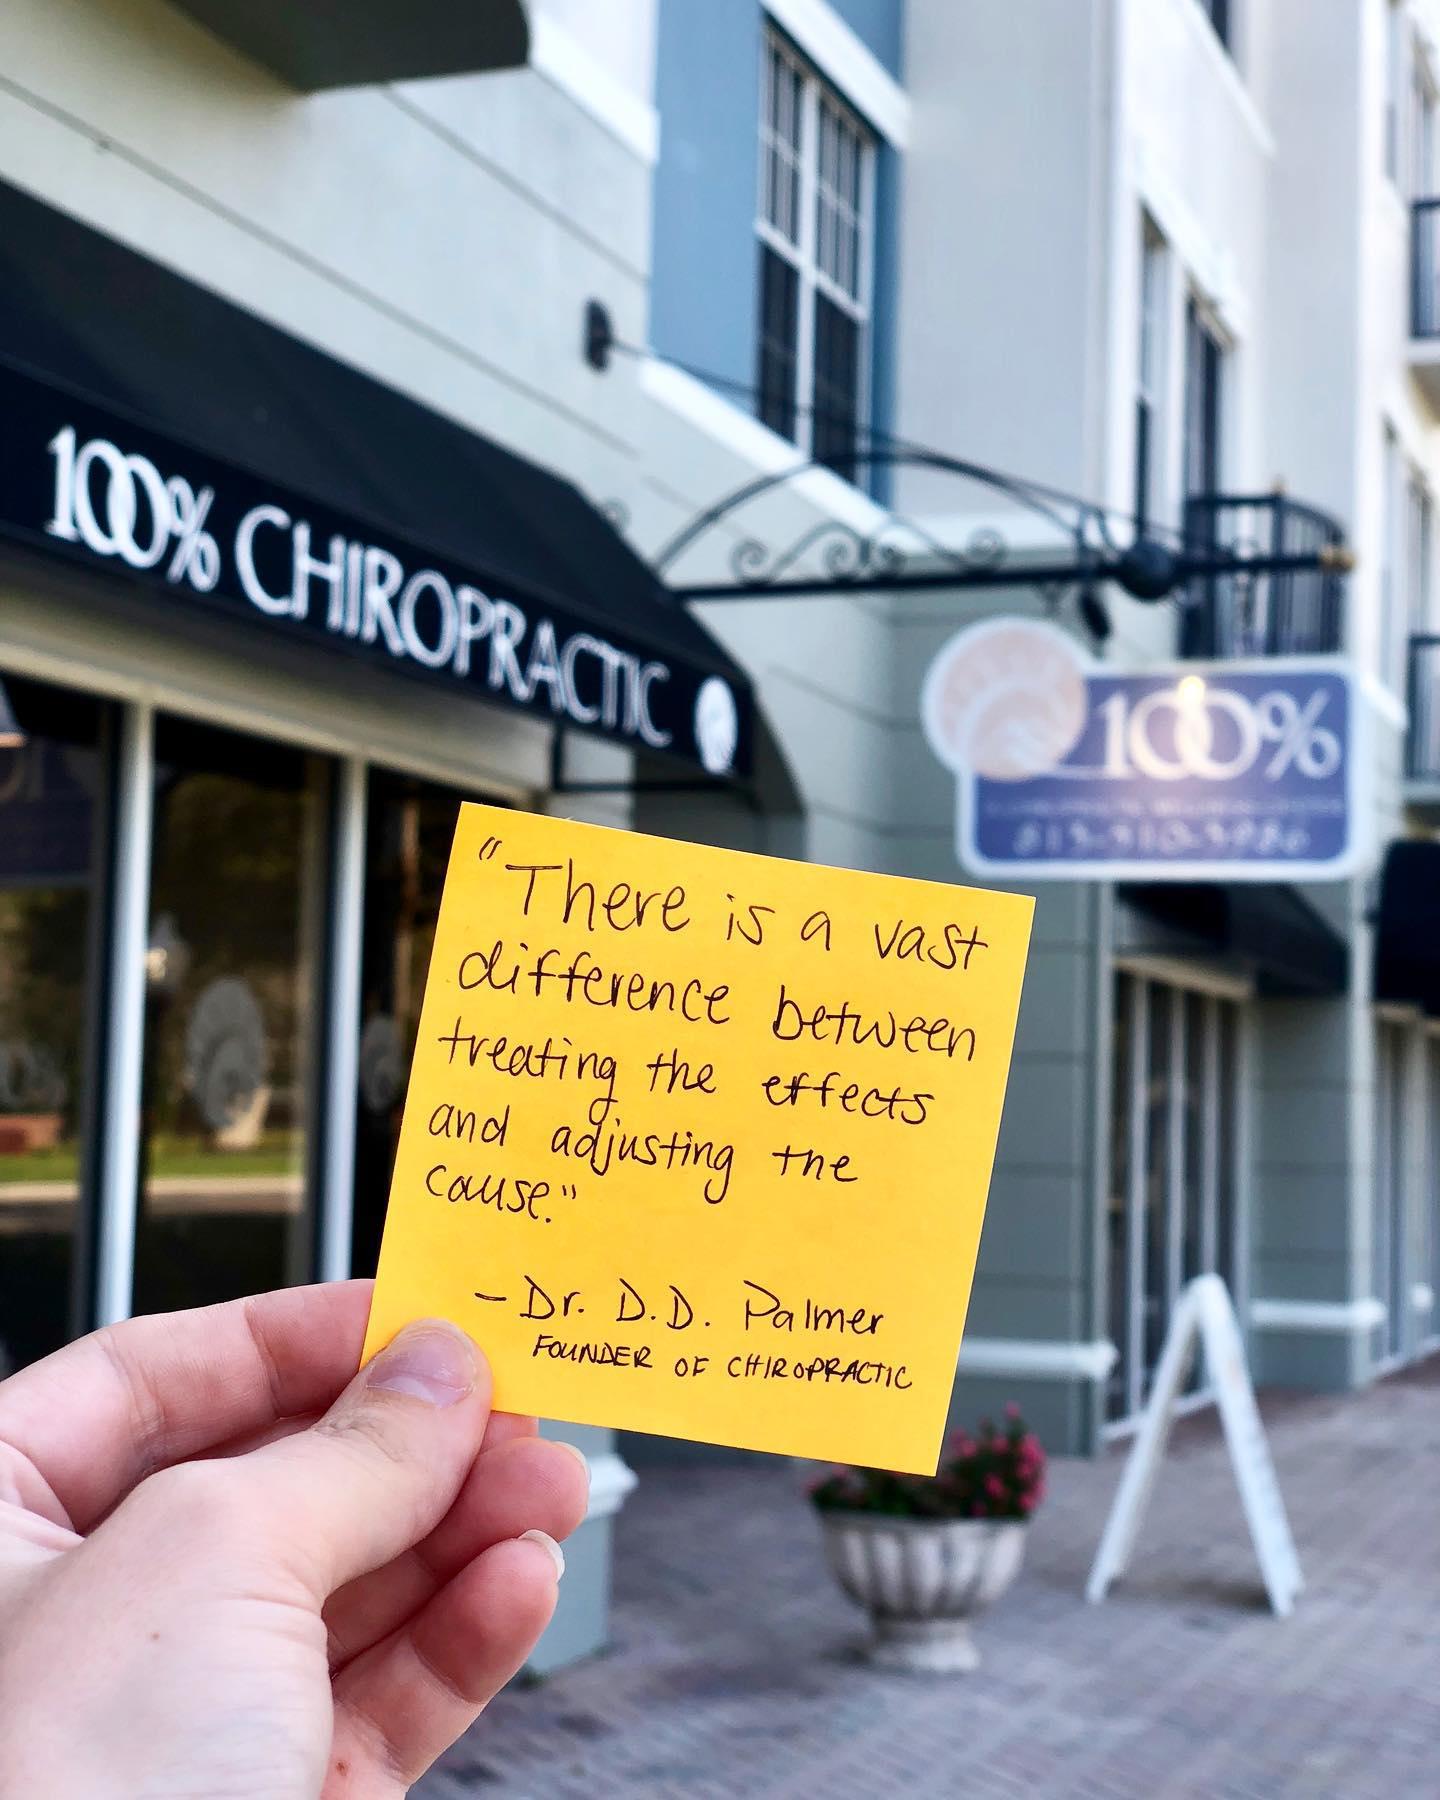 100% CHIROPRACTIC
100%
"There is a vast
difference between
treating the effects
and adjusting the
cause."
- Dr. D.D. Palmer
FOUNDER OF CHIROPRACTIC